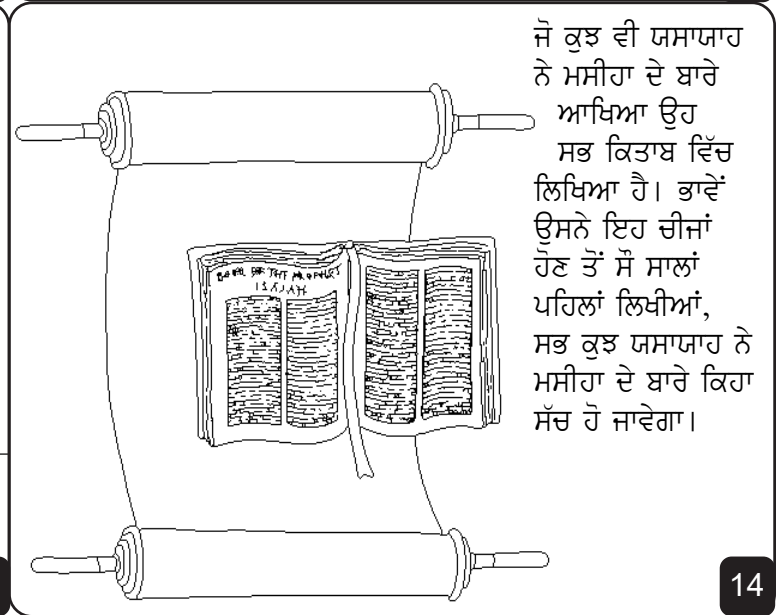 ਜੋ ਕੁਝ ਵੀ ਯਸਾਯਾਹ
ਨੇ ਮਸੀਹਾ ਦੇ ਬਾਰੇ
ਆਖਿਆ ਉਹ
ਸਭ ਕਿਤਾਬ ਵਿੱਚ
ਲਿਖਿਆ ਹੈ। ਭਾਵੇਂ
ਉਸਨੇ ਇਹ ਚੀਜਾਂ
ਹੋਣ ਤੋਂ ਸੌ ਸਾਲਾਂ
ਪਹਿਲਾਂ ਲਿਖੀਆਂ,
ਸਭ ਕੁਝ ਯਸਾਯਾਹ ਨੇ
ਮਸੀਹਾ ਦੇ ਬਾਰੇ ਕਿਹਾ
ਸੱਚ ਹੋ ਜਾਵੇਗਾ।
ISAIAH
14